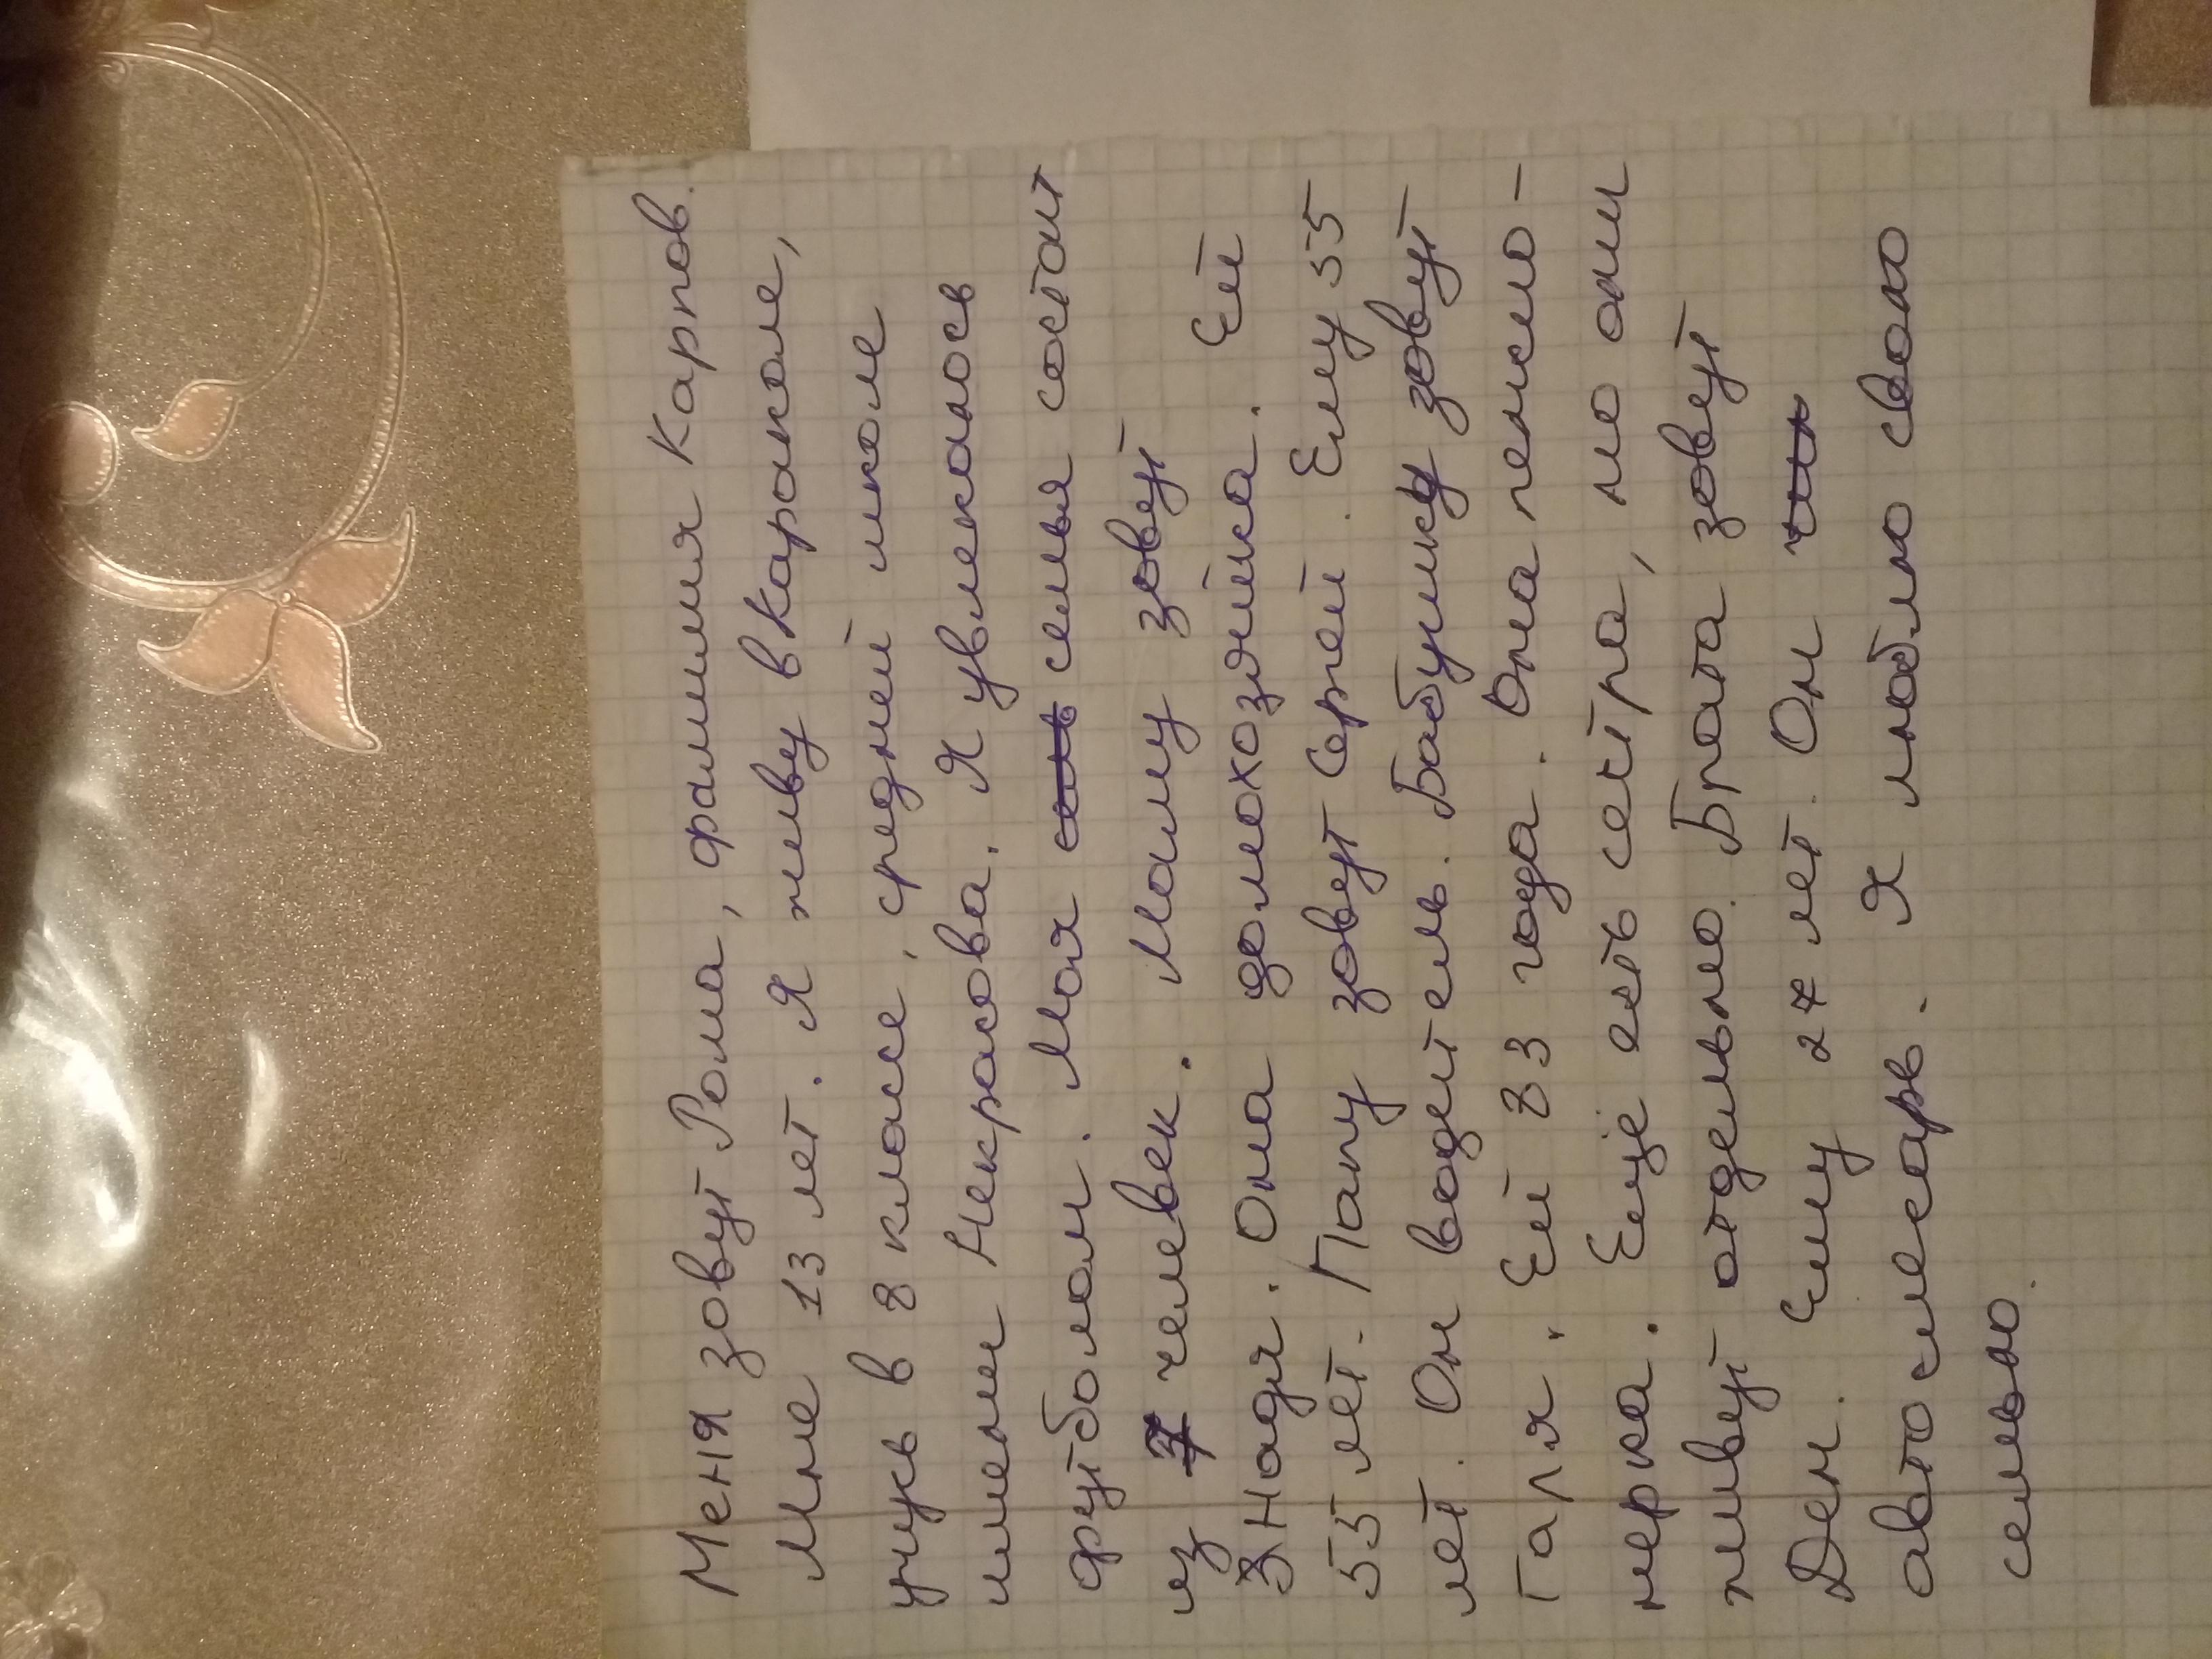 Меня зовут Рома, фамилия Карпов.
Мне 13 лет. Я живу в Караколе,
учусь в 8 классе, средней школе
имени Некрасова. Я увлекаюсь
футболом. Моя семья состоит
из 7 человек. Маму зовут
Надя. Она домохозяйка. Ей
55 лет. Папу зовут Сергей. Ему 55
лет. Он водитель. Бабушку зовут
Галя. Ей 83 года. Она пенсио-
нерка. Еще есть сестра, но они
живут отдельно. Брата зовут
Ден. Ему 27 лет. Он
автослесарь. Я люблю свою
семью.